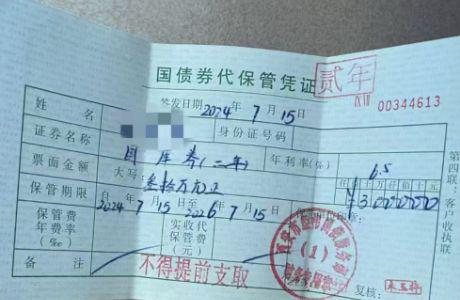 国债券代保管凭证 贰年
签发日期 2024年7月15日 00344613
姓名 身份证号码
证券名称 国库券(二年) 年利率(%) 6.5
票面金额 大写 叁拾万元正
保管期限 自2024年7月15日 2026年7月15日
保管费年费率(‰) 实收代保管费(元)
备注 不得提前支取 (1) 复核:
第四联:客户收执联